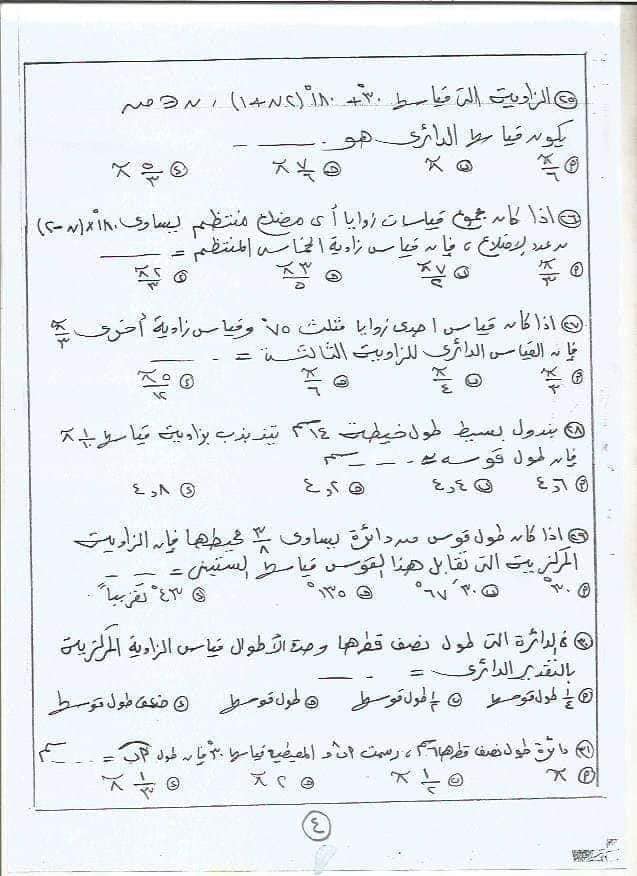 ٢٥ الزاوية التى قياسها ٣٠° + ١٨٠° (٢ن + ١) ، ن ∈ ص
يكون قياسها الدائرى هو ــــ
P π/٦ ب π ج ٧/٦ π د ٥/٣ π
٢٦ اذا كان مجموع قياسات زوايا أى مضلع منتظم يساوى ١٨٠° × (ن - ٢)
ن عدد الاضلاع ، فإن قياس زاوية الخماسى المنتظم = ــــ
P π/٣ ب ٧π/٢ ج ٣π/٥ د ٢π/٣
٢٧ اذا كان قياس احدى زوايا مثلث ٧٥° وقياس زاوية أخرى π/٣
فإن القياس الدائرى للزاوية الثالثة = ــــ
P π/٣ ب π/٤ ج π/٦ د ٥π/١٢
٢٨ بندول بسيط طول خيطه ١٤ سم يتذبذب بزاوية قياسها ١/١٠ π
فإن طول قوسه ≃ ــــ سم
P ٤,٦ ب ٤,٤ ج ٤,٢ د ٤,٨
٢٩ اذا كان طول قوس من دائرة يساوى ٣/٨ محيطها فإن الزاوية
المركزية التى تقابل هذا القوس قياسها الستينى = ــــ
P ٣٠° ب ٣٠َ ٦٧° ج ١٣٥° د ٤٣° تقريباً
٣٠ الدائرة التى طول نصف قطرها وحدة الأطوال قياس الزاوية المركزية
بالتقدير الدائرى = ــــ
P ١/٤ طول قوسها ب ١/٢ طول قوسها ج طول قوسها د ضعف طول قوسها
٣١ دائرة طول نصف قطرها ٦ سم ، رسمت المحيطية قياسها ٣٠° فإن طول = ــــ سم
P π ب ١/٢ π ج ٢ π د ١/٣ π
٤